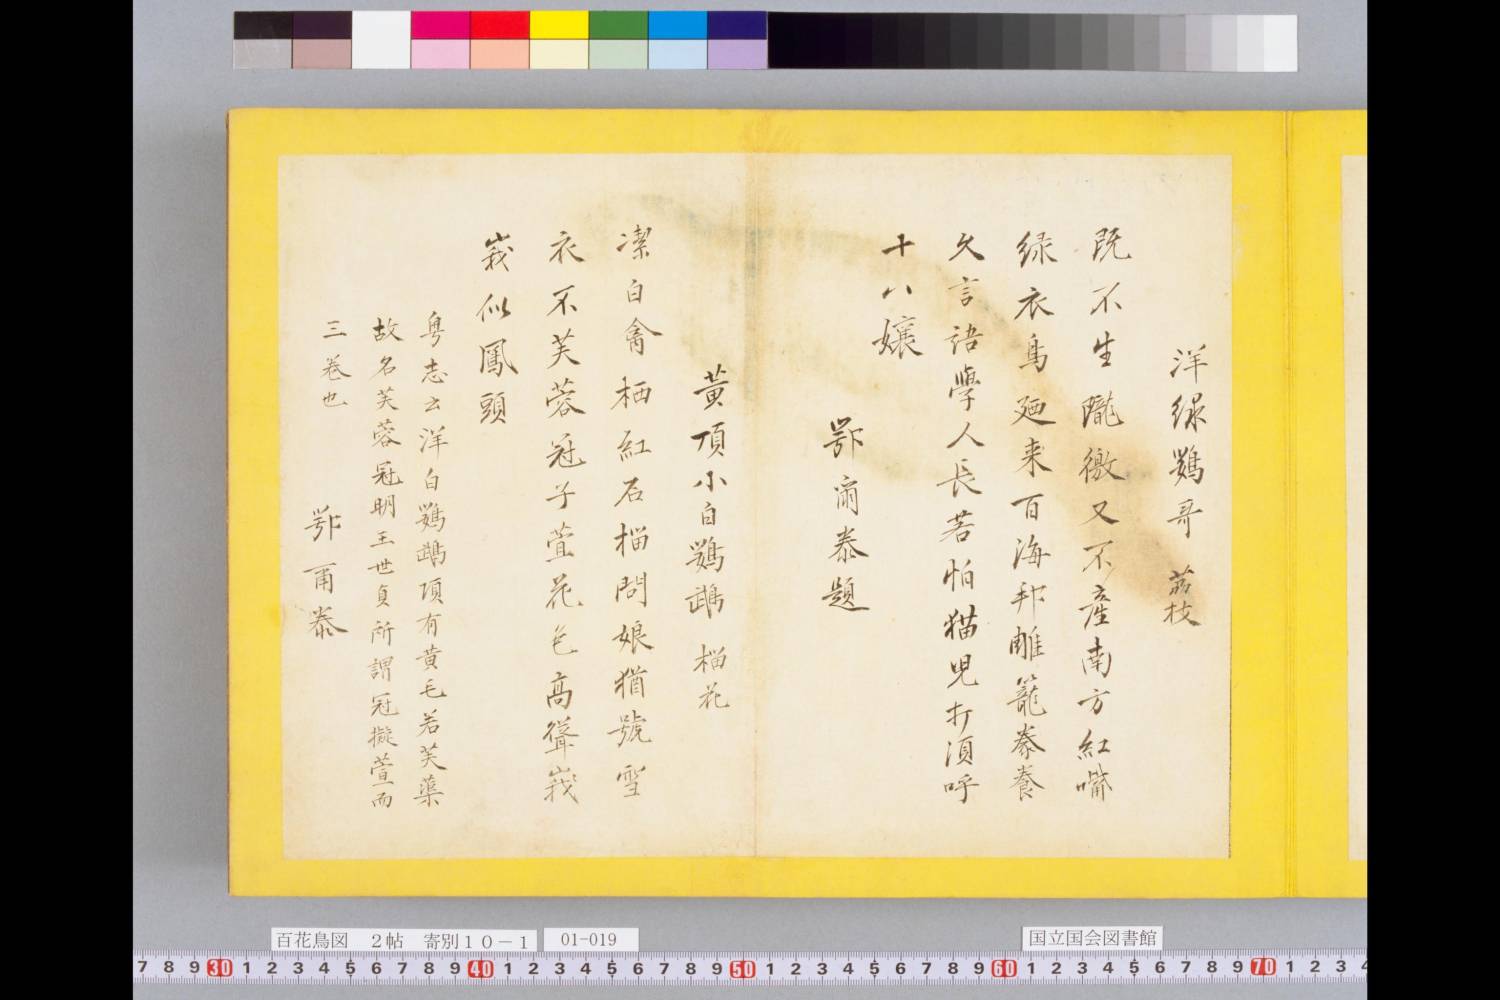 洋緑鸚哥 荔枝
既不生隴徼又不產南方紅嘴
緑衣鳥廼来百海邦雕籠豢養
久言語學人長若怕猫兒打須呼
十八孃
鄂爾泰題
黃頂小白鸚鵡 榴花
潔白禽栖紅石榴問娘猶號雪
衣不芙蓉冠子萱花色高聳峩
峩似鳳頭
粤志云洋白鸚鵡頂有黄毛若芙蕖
故名芙蓉冠明王世貞所謂冠擬萱而
三卷也
鄂爾泰
百花鳥図 2帖 寄別10-1
01-019
国立国会図書館
7 8 9 30 1 2 3 4 5 6 7 8 9 40 1 2 3 4 5 6 7 8 9 50 1 2 3 4 5 6 7 8 9 60 1 2 3 4 5 6 7 8 9 70 1 2 3 4